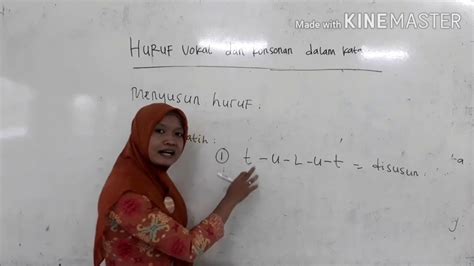 Made with KINEMASTER
HURUF vokal dan konsonan dalam kata
menyusun huruf :
atih :
① t - u - L - u - t = disusun . . .